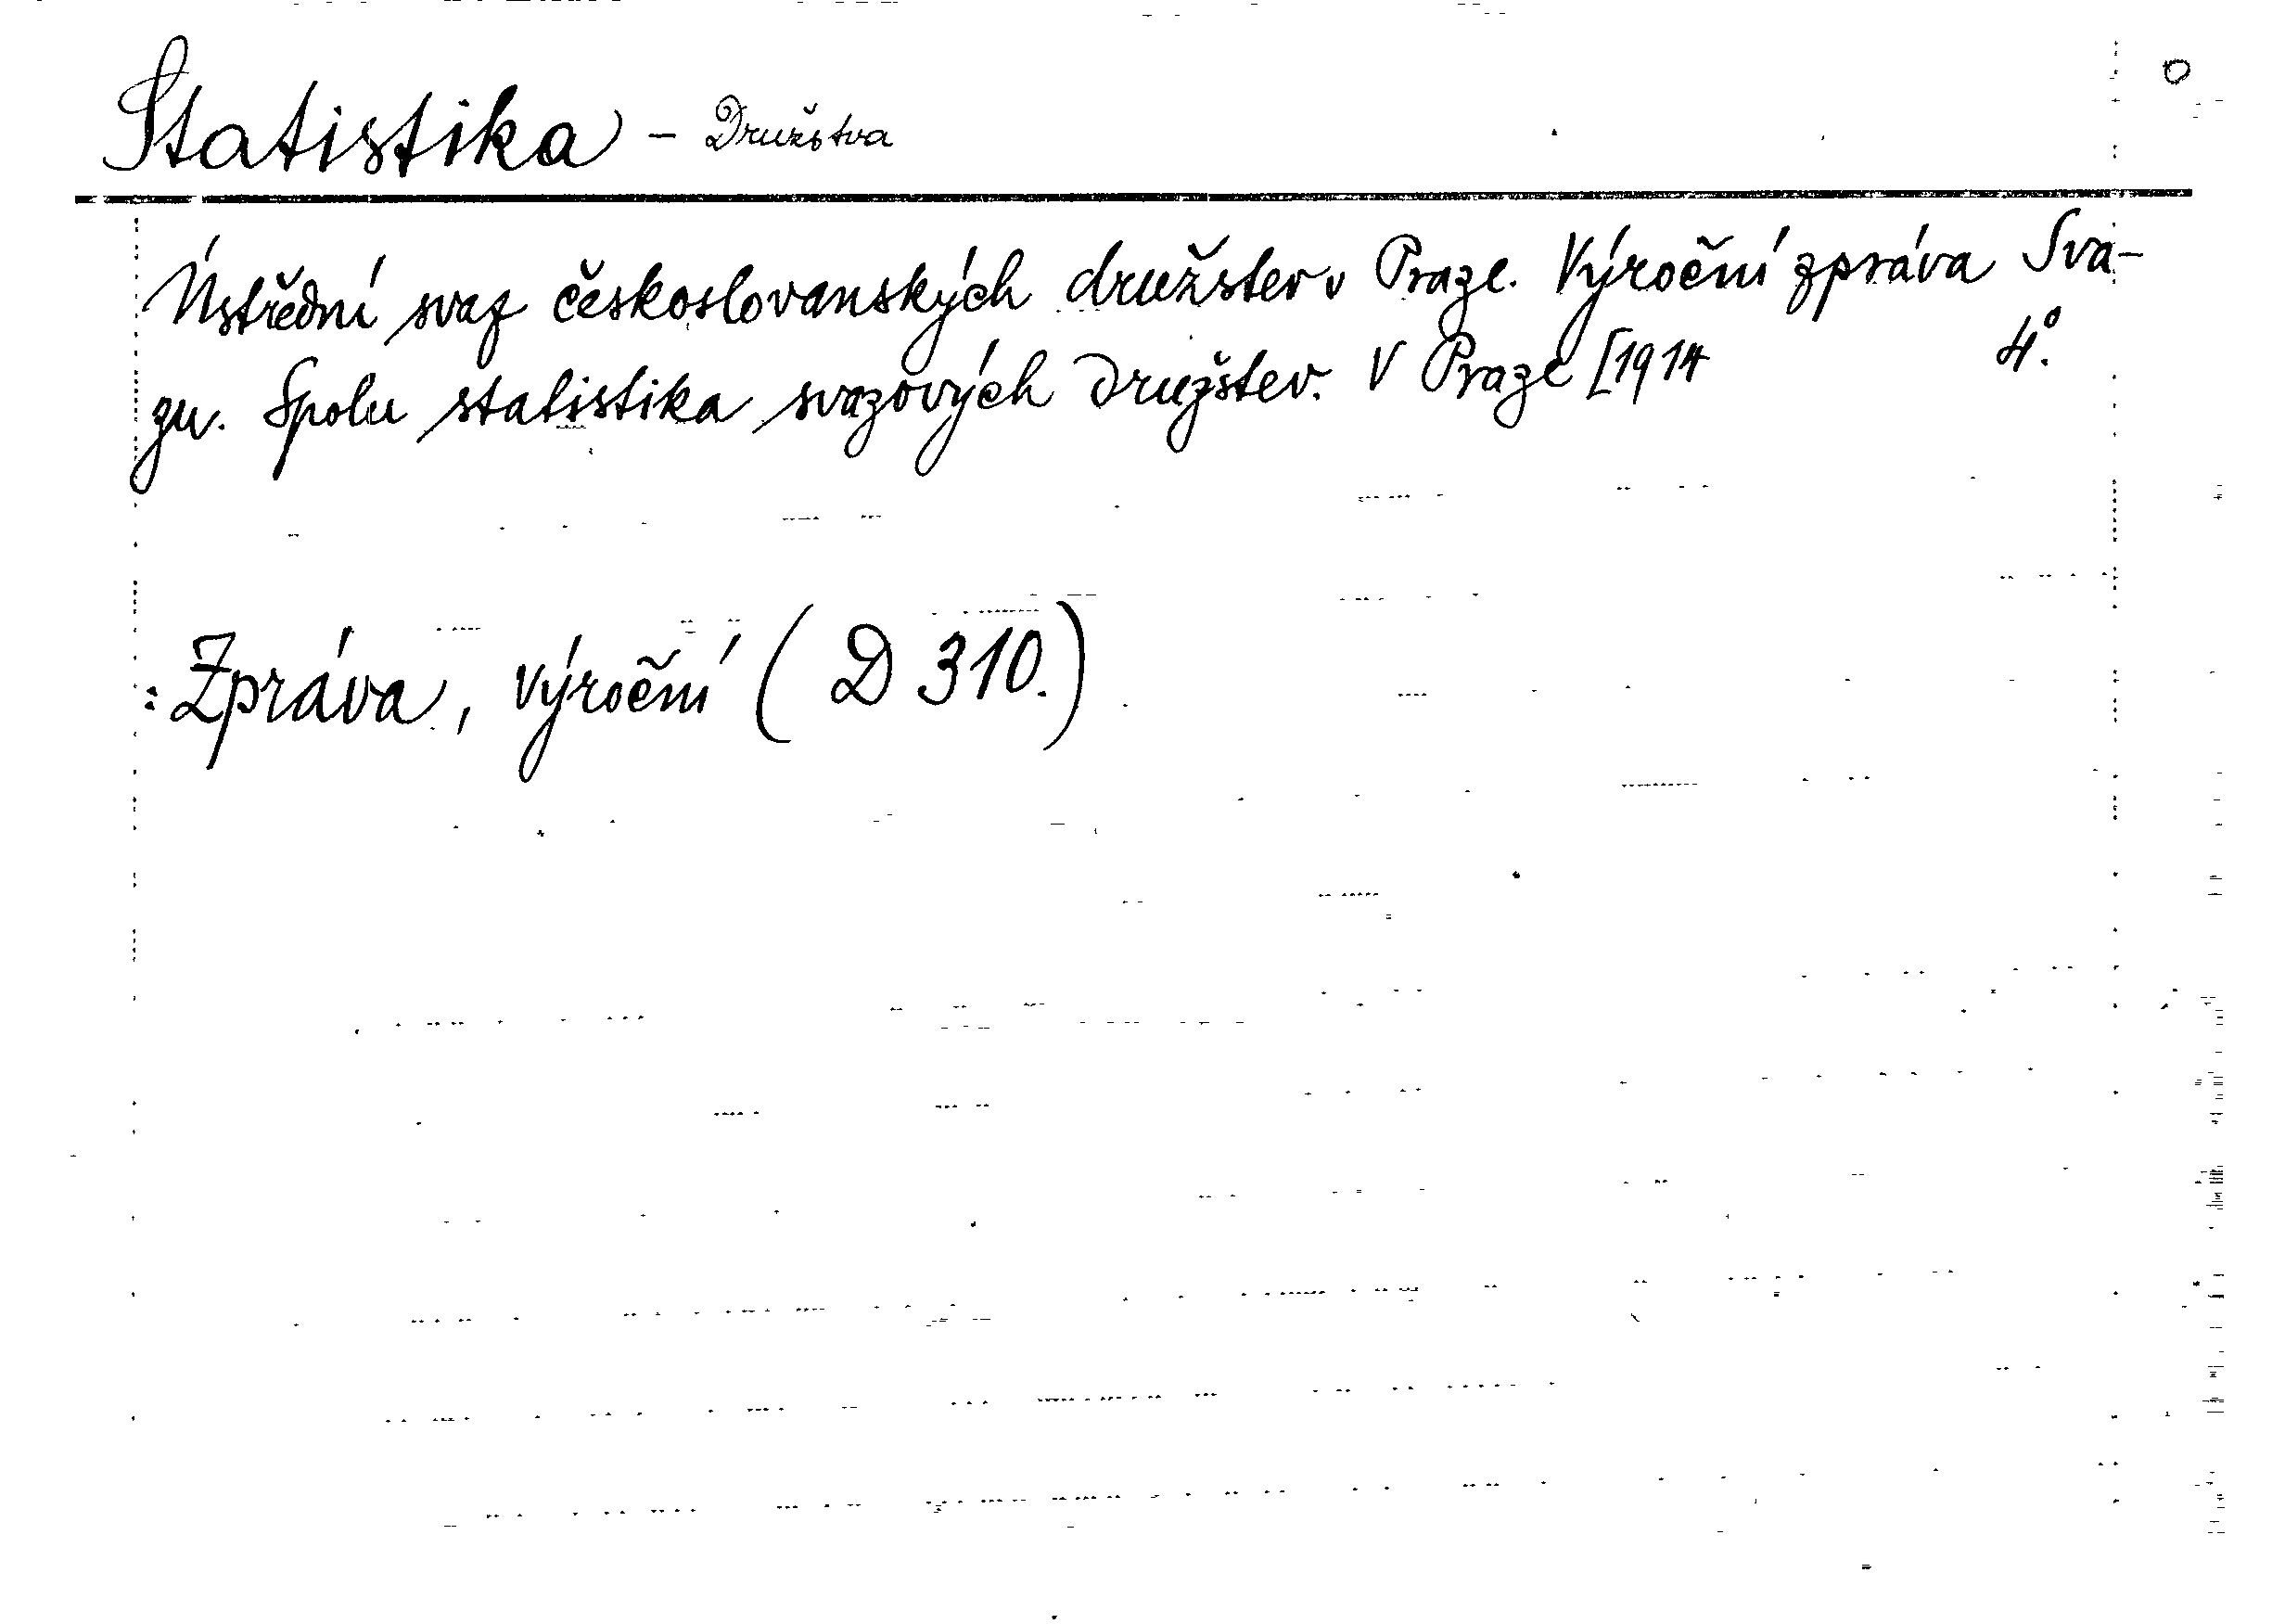 Statistika - Družstva
Ústřední svaz českoslovanských družstev v Praze. Výroční zpráva Sva-
zu. Spolu statistika svazových družstev. V Praze [1914 4°.
: Zpráva, výroční ( D 310.)